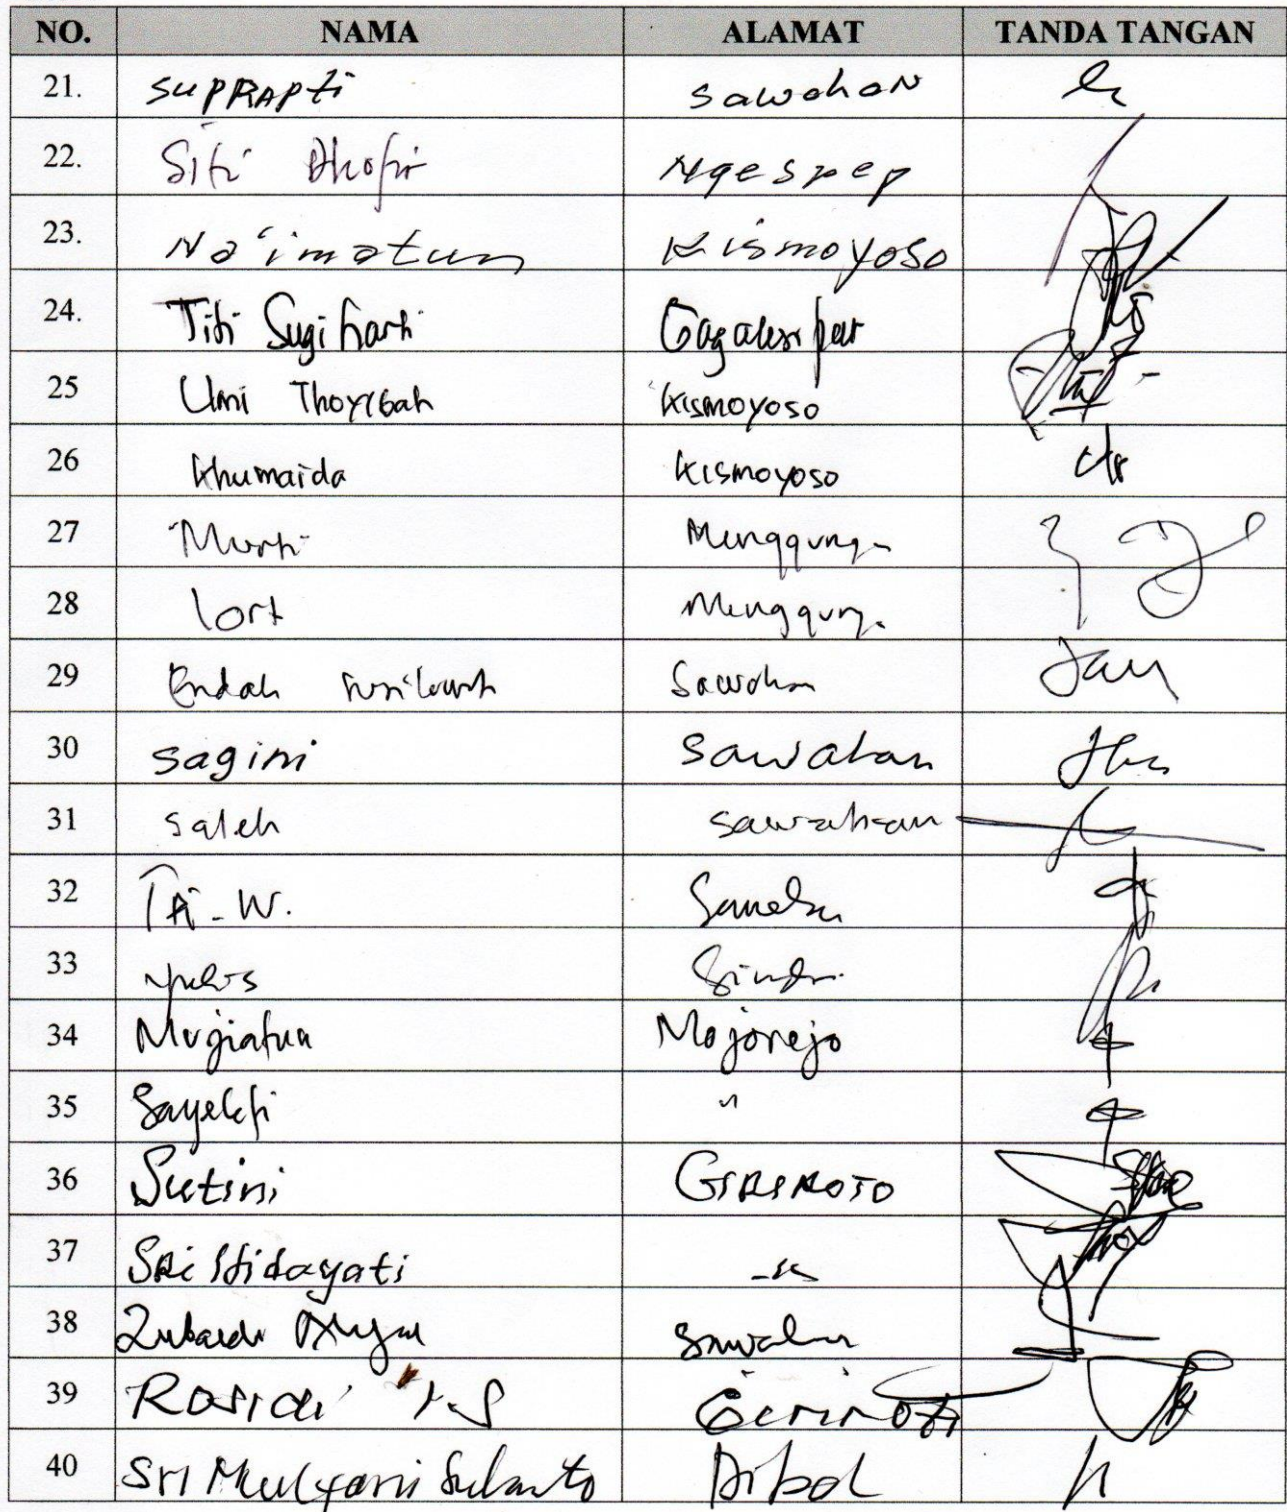 NO. NAMA ALAMAT TANDA TANGAN
21. SUPRAPti Sawahan
22. Siti Dhofir Ngesrep
23. Na'imatun Kismoyoso
24. Titi Sugiharti Gagaksipat
25 Umi Thoyibah Kismoyoso
26 Khumaida Kismoyoso
27 Murti Manggung
28 Manggung
29 Endah Susilowati Sawahan
30 Sagini Sawahan
31 Saleh Sawahan
32
33
34 Mugiatun Mojorejo
35 Sayekti "
36 Sutini GIRIROTO
37 SRi Hidayati
38 Sawahan
39 Rosidi Giriroto
40 Sri Mulyani Dibal